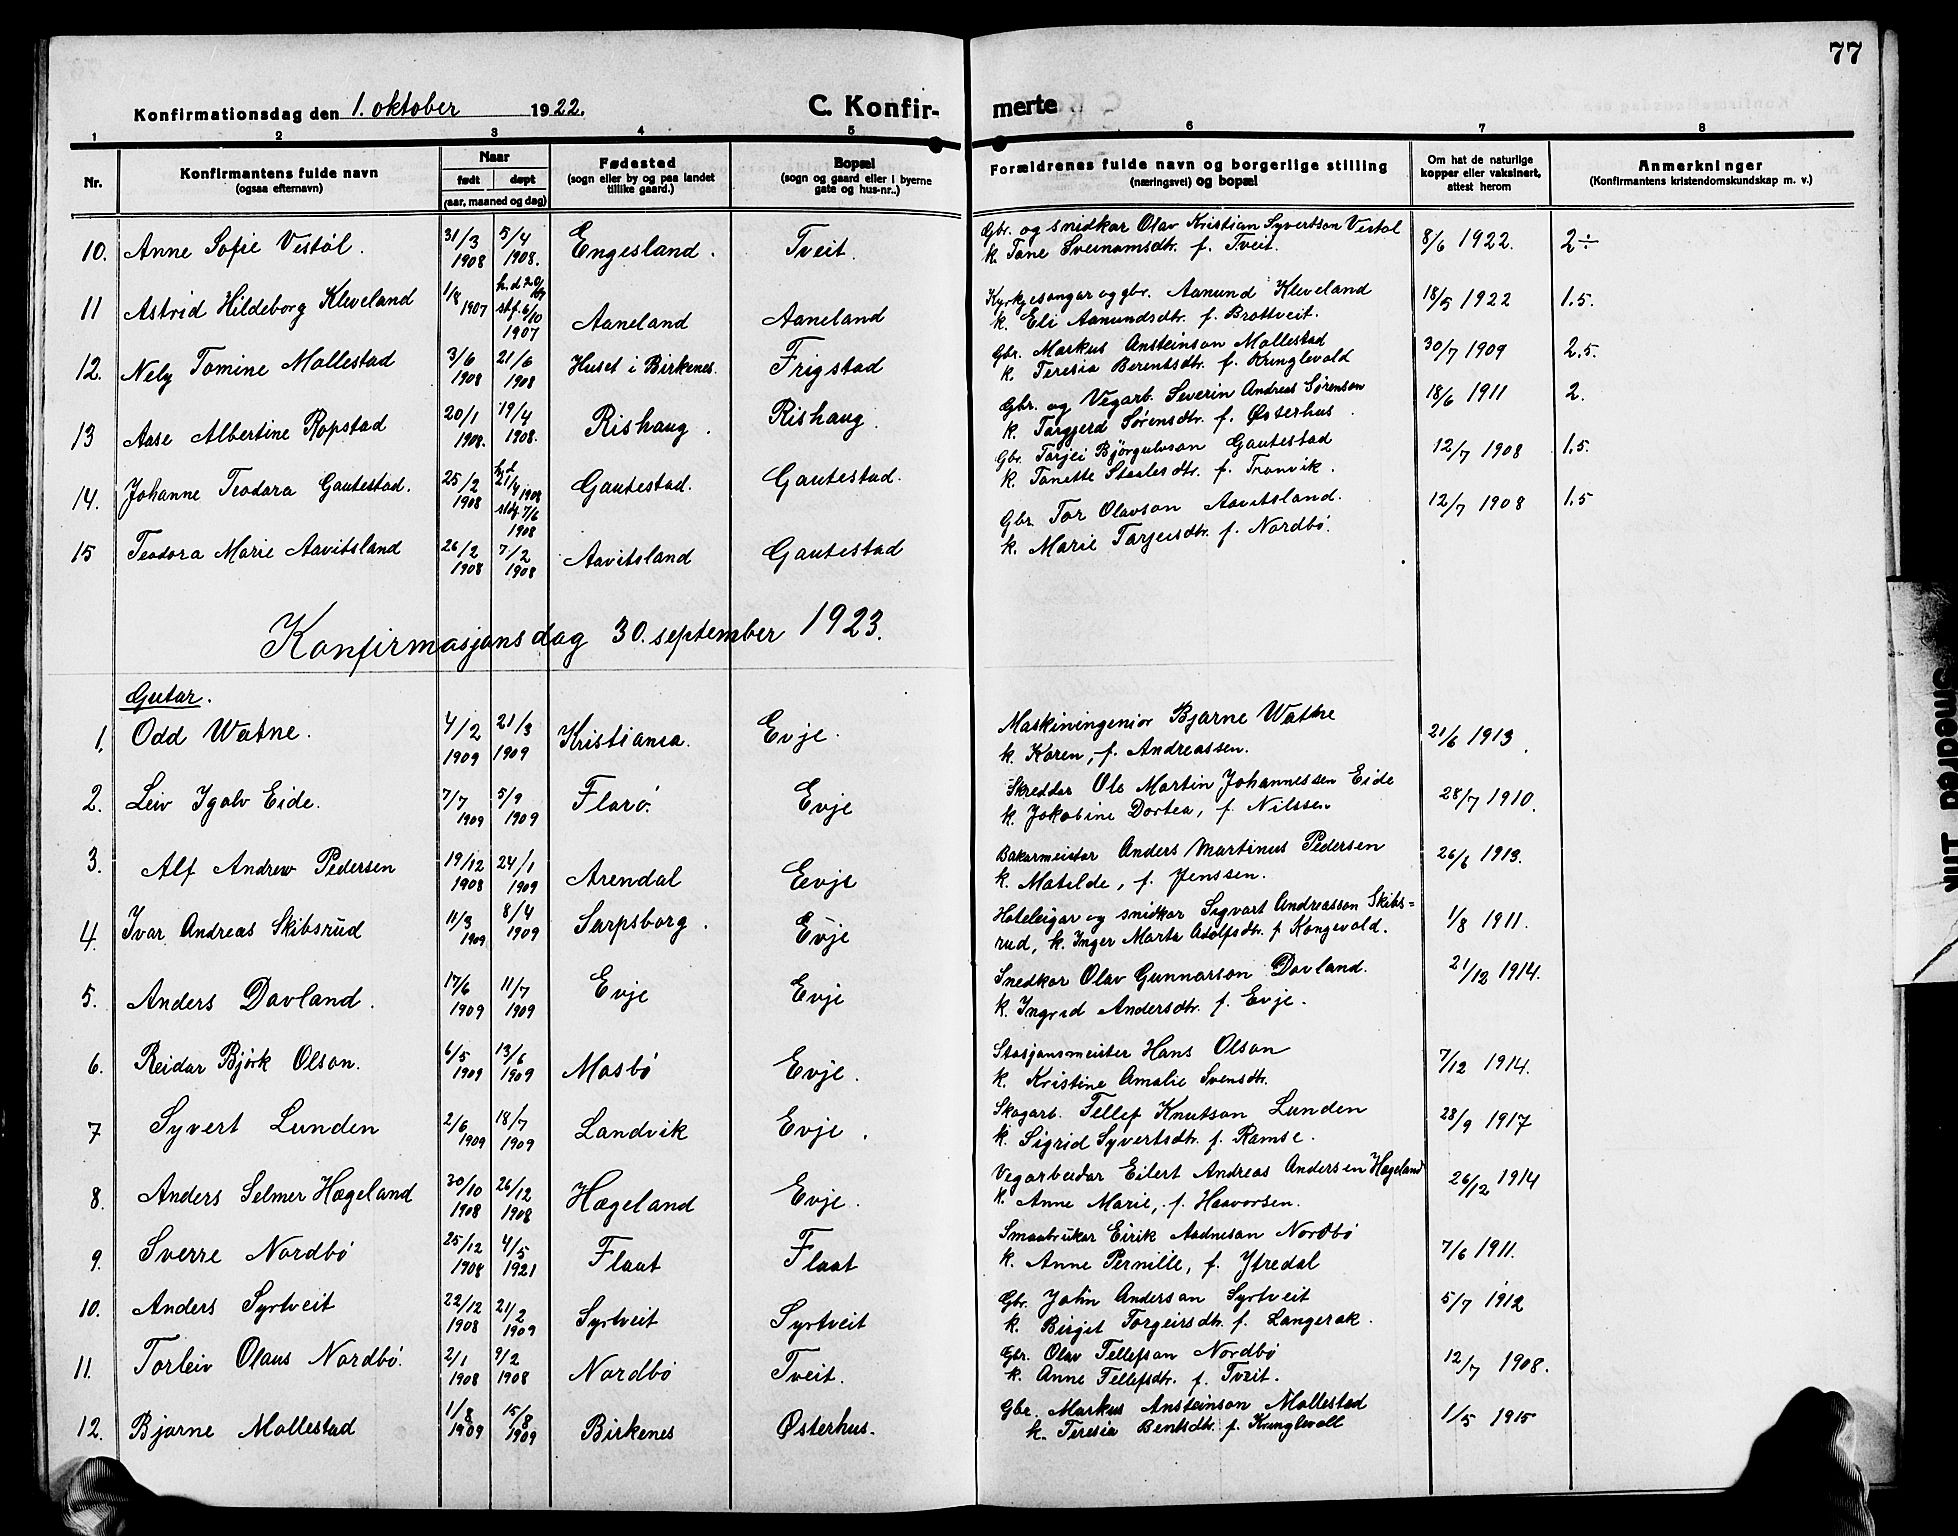 77
Konfirmationsdag den 1. oktober 1922.
C. Konfir- merte
1 2 3 4 5 6 7 8
Nr.
Konfirmantens fulde navn
(ogsaa efternavn)
Naar
født døpt
(aar, maaned og dag)
Fødested
(sogn eller by og paa landet
tillike gaard.)
Bopæl
(sogn og gaard eller i byerne
gate og hus-nr.)
Forældrenes fulde navn og borgerlige stilling
(næringsvei) og bopæl
Om hat de naturlige
kopper eller vaksinert,
attest herom
Anmerkninger
(Konfirmantens kristendomskundskap m. v.)
10. Anne Sofie Vestöl. 31/3 1908 5/4 1908. Engesland. Tveit. Gbr. og snidkar Olav Kristian Syvertson Vestöl 8/6 1922. 2÷
k. Tone Sveinamsdtr. f. Tveit.
11 Astrid Hildeborg Kleveland 1/8 1907 h.d 20/ stf. 6/10 1907 Aaneland Aaneland Kyrkjesongar og gbr. Aamund Kleveland 18/5 1922 1.5.
k. Eli Aamundsdtr. f. Brottveit.
12. Nely Tomine Mollestad 3/6 1908 21/6 1908 Huset i Birkenes. Frigstad Gbr. Markus Ansteinson Mollestad 30/7 1909 2.5.
k. Teresia Berentsdtr. f. Kringlevold
13 Aase Albertine Ropstad 20/1 1908. 19/4 1908. Rishaug. Rishaug. Gbr. og Vegarb. Severin Andreas Sørenson 18/6 1911 2.
k. Torgjerd Sørensdtr. f. Østerhus.
14. Johanne Teodora Gautestad. 25/2 1908 hd 21/4 1908 stdf. 7/6 1908 Gautestad. Gautestad. Gbr. Tarjei Bjørgulvson Gautestad 12/7 1908 1.5.
k. Tonette Staalesdtr. f. Tronvik.
15 Teodora Marie Aavitsland 26/2 1908 7/2 1908 Aavitsland Gautestad Gbr. Tor Olavson Aavitsland. 12/7 1908 1.5
k. Marie Tarjeisdtr. f. Nordbö.
Konfirmasjonsdag 30. september 1923.
Gutar.
1. Odd Watne. 4/2 1909 21/3 1909 Kristiania. Evje. Maskiningeniör Bjarne Watne 21/6 1913.
k. Karen, f. Andreassen.
2. Leiv Igolv Eide. 7/7 1909 5/9 1909 Florö. Evje Skreddar Ole Martin Johannessen Eide 28/7 1910.
k. Jokobine Dortea, f. Nilssen
3. Alf Andrew Pedersen 19/12 1908 24/1 1909 Arendal Evje Bakarmeister Anders Martinus Pedersen 26/6 1913.
k. Matilde, f. Jenssen.
4. Ivar Andreas Skibsrud 11/3 1909 8/4 1909 Sarpsborg. Evje Hoteleigar og snidkar Sigvart Andreasson Skibs= 1/8 1911.
rud, k. Inger Marta Adolfsdtr. f Kongevold.
5. Anders Dovland. 17/6 1909 11/7 1909 Evje Evje Snedkar Olav Gunnarson Dovland. 21/12 1914.
k. Ingrid Andersdtr. f. Evje.
6. Reidar Bjørk Olson. 6/5 1909 13/6 1909 Mosbö Evje. Stasjonsmeister Hans Olson 7/12 1914.
k. Kristine Amalie Svensdtr.
7 Syvert Lunden 2/6 1909 18/7 1909 Landvik Evje. Skogarb. Tellef Knutson Lunden 28/9 1917
k. Sigrid Syvertsdtr. f. Ramse.
8. Anders Selmer Hægeland 30/10 1908 26/12 1908 Hægeland Evje. Vegarbeidar Eilert Andreas Andersen Hægeland 26/12 1914
k. Anne Marie, f. Haavorsen.
9. Sverre Nordbö 25/12 1908 4/5 1921 Flaat Flaat Smaabrukar Eirik Aadneson Nordbö 7/6 1911.
k. Anne Pernille, f. Ytredal
10. Anders Syrtveit 22/12 1908 21/2 1909 Syrtveit Syrtveit Gbr. John Anderson Syrtveit 5/7 1912
k. Birgit Torgeirsdtr. f. Langerak.
11. Torleiv Olaus Nordbö. 2/1 1908 9/2 1908 Nordbö Tveit. Gbr. Olav Tellefson Nordbö 12/7 1908.
k. Anne Tellefsdtr. f. Tveit.
12. Bjarne Mollestad 1/8 1909 15/8 1909 Birkenes Østerhus. Gbr. Markus Ansteinson Mollestad 1/5 1915
k. Teresia Bentsdtr. f. Kringlevoll